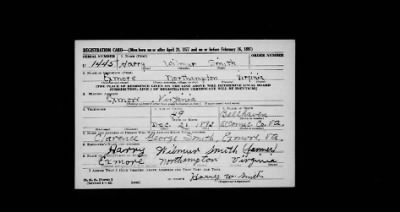 REGISTRATION CARD—(Men born on or after April 28, 1877 and on or before February 16, 1897)
SERIAL NUMBER ORDER NUMBER
1445 Harry Wilmur Smith
Exmore Northampton Virginia
(THE PLACE OF RESIDENCE GIVEN ON THE LINE ABOVE WILL DETERMINE LOCAL BOARD
JURISDICTION; LINE 2 OF REGISTRATION CERTIFICATE WILL BE IDENTICAL)
Exmore Virginia
49 Belle Haven
Dec. 21 1892 Accomac Co. Va.
Clarence George Smith, Exmore, Va.
Harry Wilmur Smith (farmer)
Exmore Northampton Virginia
I AFFIRM THAT I HAVE VERIFIED ABOVE ANSWERS AND THAT THEY ARE TRUE.
Harry W. Smith